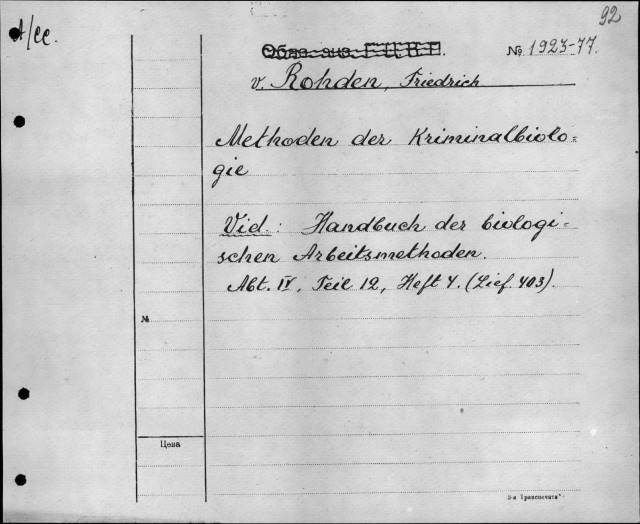 92
A/cc.
№ 1923-77.
v. Rohden, Friedrich
Methoden der Kriminalbiolo=
gie
Vid.: Handbuch der biologi=
schen Arbeitsmethoden.
Abt. IV, Teil 12, Heft 4. (Lief. 403).
№
Цена